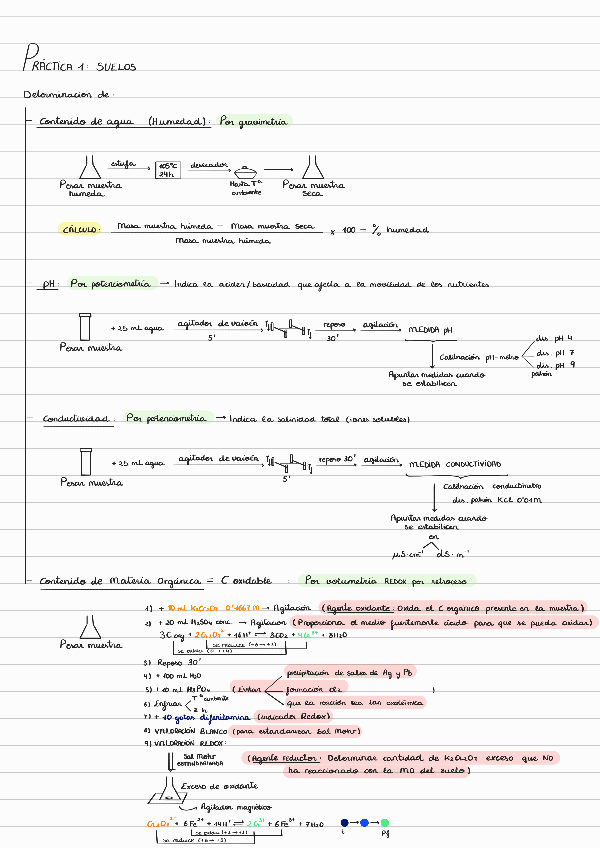 PRÁCTICA 1: SUELOS
Determinación de:
Contenido de agua (Humedad): Por gravimetría
estufa
105°C
24h
desecador
Hasta Tª
ambiente
Pesar muestra
húmeda
Pesar muestra
seca
CÁLCULO:
Masa muestra húmeda - Masa muestra seca
Masa muestra húmeda
x 100 = % humedad
pH: Por potenciometría → Indica la acidez/basicidad que afecta a la movilidad de los nutrientes
+ 25 mL agua
agitador de vaivén
5'
reposo
30'
agitación
MEDIDA pH
Pesar muestra
Calibración pH-metro
dis. pH 4
dis. pH 7
dis. pH 9
patrón
Apuntar medidas cuando
se estabilicen
Conductividad: Por potenciometría → Indica la salinidad total (iones solubles)
+ 25 mL agua
agitador de vaivén
5'
reposo 30'
agitación
MEDIDA CONDUCTIVIDAD
Pesar muestra
Calibración conductímetro
dis. patrón KCl 0'01M
Apuntar medidas cuando
se estabilicen
en
μS·cm⁻¹ dS·m⁻¹
Contenido de Materia Orgánica = C oxidable : Por volumetría REDOX por retroceso
Pesar muestra
1) + 10 mL K₂Cr₂O₇ 0'1667 M → Agitación (Agente oxidante: Oxida el C orgánico presente en la muestra)
2) + 20 mL H₂SO₄ conc. → Agitación (Proporciona el medio fuertemente ácido para que se pueda oxidar)
3C org + 2Cr₂O₇²⁻ + 16H⁺ ⇌ 3CO₂ + 4Cr³⁺ + 8H₂O
se reduce (+6 → +3)
se oxida (0 → +4)
3) Reposo 30'
4) + 100 mL H₂O
5) + 10 mL H₃PO₄ (Evitar
precipitación de sales de Ag y Pb
formación Cl₂
que la reacción sea tan exotérmica
)
6) Enfriar
Tª ambiente
2 h
7) + 10 gotas difenilamina (indicador Redox)
8) VALORACIÓN BLANCO (para estandarizar Sal Mohr)
9) VALORACIÓN REDOX:
Sal Mohr
estandarizada
(Agente reductor: Determinar cantidad de K₂Cr₂O₇ exceso que NO
ha reaccionado con la MO del suelo)
Exceso de oxidante
Agitador magnético
Cr₂O₇²⁻ + 6Fe²⁺ + 14H⁺ ⇌ 2Cr³⁺ + 6Fe³⁺ + 7H₂O
se oxida (+2 → +3)
se reduce (+6 → +3)
i
pf